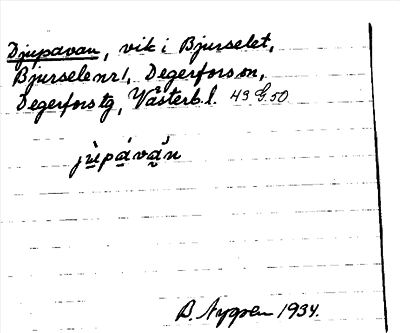 Djupavan, vik i Bjurselet,
Bjursele nr 1, Degerfors sn,
Degerfors tg, Västerb. l. 49 G. 50
jùpavàn
B. Nygren 1934.